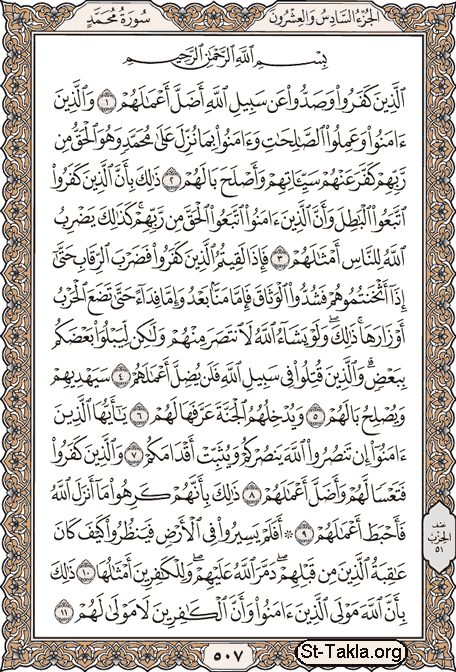 الجُزْءُ السَّادِسُ وَالعِشْرُونَ
سُورَةُ مُحَمَّدٍ
بِسْمِ ٱللَّهِ ٱلرَّحْمَٰنِ ٱلرَّحِيمِ
ٱلَّذِينَ كَفَرُوا۟ وَصَدُّوا۟ عَن سَبِيلِ ٱللَّهِ أَضَلَّ أَعْمَٰلَهُمْ ١ وَٱلَّذِينَ
ءَامَنُوا۟ وَعَمِلُوا۟ ٱلصَّٰلِحَٰتِ وَءَامَنُوا۟ بِمَا نُزِّلَ عَلَىٰ مُحَمَّدٍ وَهُوَ ٱلْحَقُّ مِن
رَّبِّهِمْ كَفَّرَ عَنْهُمْ سَيِّـَٔاتِهِمْ وَأَصْلَحَ بَالَهُمْ ٢ ذَٰلِكَ بِأَنَّ ٱلَّذِينَ كَفَرُوا۟
ٱتَّبَعُوا۟ ٱلْبَٰطِلَ وَأَنَّ ٱلَّذِينَ ءَامَنُوا۟ ٱتَّبَعُوا۟ ٱلْحَقَّ مِن رَّبِّهِمْ ۚ كَذَٰلِكَ يَضْرِبُ
ٱللَّهُ لِلنَّاسِ أَمْثَٰلَهُمْ ٣ فَإِذَا لَقِيتُمُ ٱلَّذِينَ كَفَرُوا۟ فَضَرْبَ ٱلرِّقَابِ حَتَّىٰٓ
إِذَآ أَثْخَنتُمُوهُمْ فَشُدُّوا۟ ٱلْوَثَاقَ فَإِمَّا مَنًّۢا بَعْدُ وَإِمَّا فِدَآءً حَتَّىٰ تَضَعَ ٱلْحَرْبُ
أَوْزَارَهَا ۚ ذَٰلِكَ ۖ وَلَوْ يَشَآءُ ٱللَّهُ لَٱنتَصَرَ مِنْهُمْ وَلَٰكِن لِّيَبْلُوَا۟ بَعْضَكُم
بِبَعْضٍ ۗ وَٱلَّذِينَ قُتِلُوا۟ فِى سَبِيلِ ٱللَّهِ فَلَن يُضِلَّ أَعْمَٰلَهُمْ ٤ سَيَهْدِيهِمْ
وَيُصْلِحُ بَالَهُمْ ٥ وَيُدْخِلُهُمُ ٱلْجَنَّةَ عَرَّفَهَا لَهُمْ ٦ يَٰٓأَيُّهَا ٱلَّذِينَ
ءَامَنُوٓا۟ إِن تَنصُرُوا۟ ٱللَّهَ يَنصُرْكُمْ وَيُثَبِّتْ أَقْدَامَكُمْ ٧ وَٱلَّذِينَ كَفَرُوا۟
فَتَعْسًا لَّهُمْ وَأَضَلَّ أَعْمَٰلَهُمْ ٨ ذَٰلِكَ بِأَنَّهُمْ كَرِهُوا۟ مَآ أَنزَلَ ٱللَّهُ
فَأَحْبَطَ أَعْمَٰلَهُمْ ٩ ۞ أَفَلَمْ يَسِيرُوا۟ فِى ٱلْأَرْضِ فَيَنظُرُوا۟ كَيْفَ كَانَ
عَٰقِبَةُ ٱلَّذِينَ مِن قَبْلِهِمْ ۚ دَمَّرَ ٱللَّهُ عَلَيْهِمْ ۖ وَلِلْكَٰفِرِينَ أَمْثَٰلُهَا ١٠ ذَٰلِكَ
بِأَنَّ ٱللَّهَ مَوْلَى ٱلَّذِينَ ءَامَنُوا۟ وَأَنَّ ٱلْكَٰفِرِينَ لَا مَوْلَىٰ لَهُمْ ١١
نصف
الحزب
٥١
٥٠٧
St-Takla.org